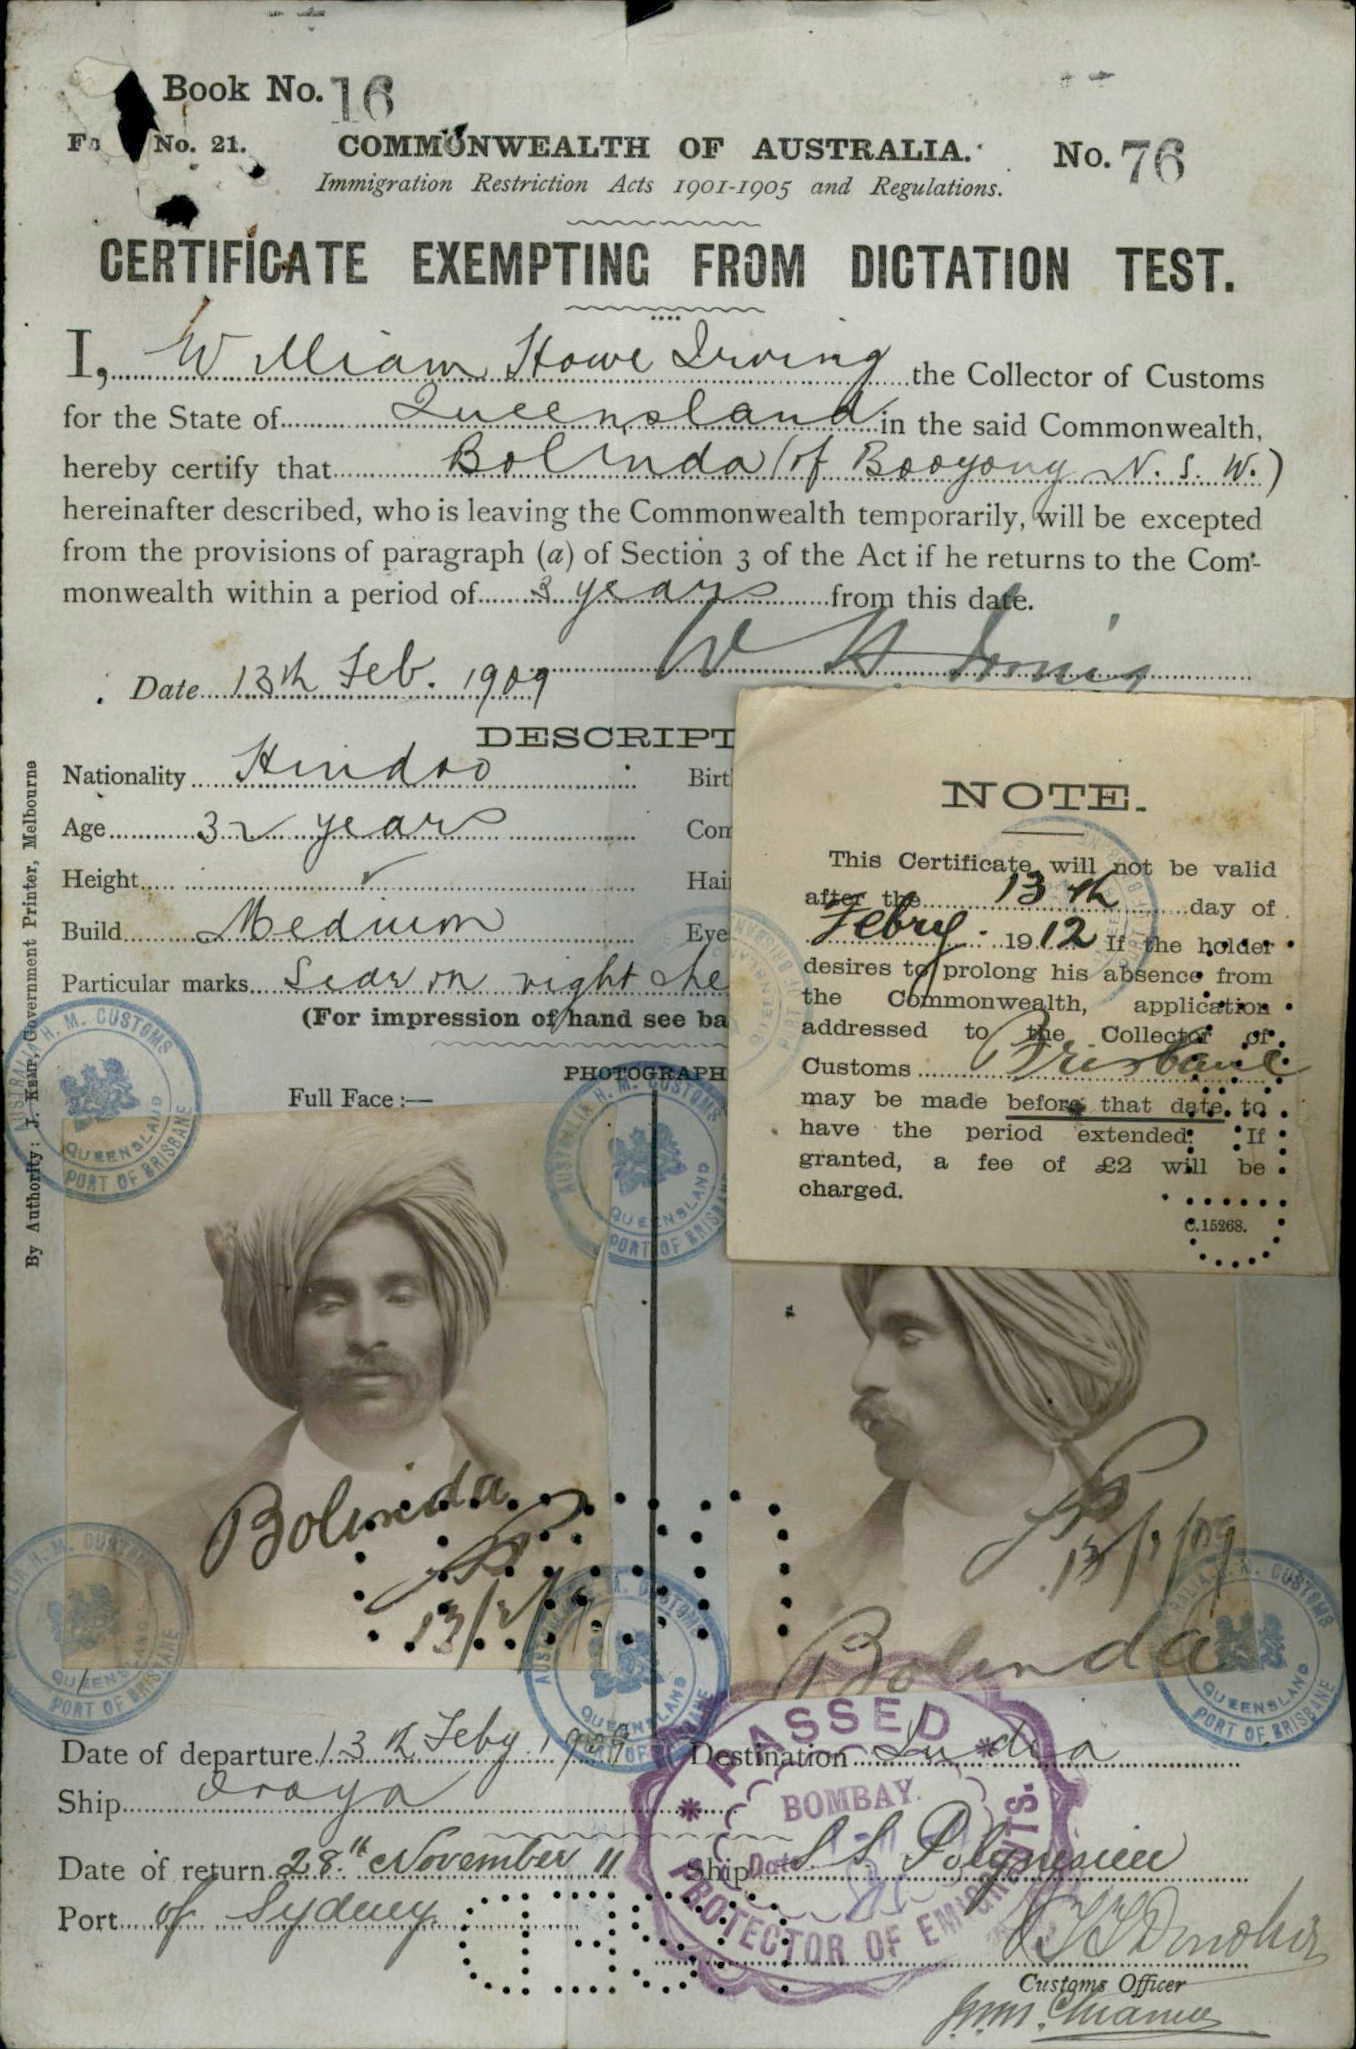 Book No. 16
No. 21. COMMONWEALTH OF AUSTRALIA. No. 76
Immigration Restriction Acts 1901-1905 and Regulations.
CERTIFICATE EXEMPTING FROM DICTATION TEST.
I, William Howe Irving the Collector of Customs
for the State of Queensland in the said Commonwealth,
hereby certify that Bolinda (of Booyong N. S. W.)
hereinafter described, who is leaving the Commonwealth temporarily, will be excepted
from the provisions of paragraph (a) of Section 3 of the Act if he returns to the Com-
monwealth within a period of 3 years from this date.
W H Irving
Date 13th Feb. 1909
DESCRIPT
Nationality Hindoo Birt
Age 32 years Com
Height Hai
Build Medium Eye
Particular marks Scar on right che
(For impression of hand see ba
PHOTOGRAPH
Full Face:—
NOTE.
This Certificate will not be valid
after the 13th day of
Febry. 1912 If the holder
desires to prolong his absence from
the Commonwealth, application
addressed to the Collector of
Customs Brisbane
may be made before that date to
have the period extended. If
granted, a fee of £2 will be
charged.
C.15268.
By Authority: J. Kemp, Government Printer, Melbourne
AUSTRALIA H. M. CUSTOMS
QUEENSLAND
PORT OF BRISBANE
AUSTRALIA H. M. CUSTOMS
QUEENSLAND
PORT OF BRISBANE
Bolinda
13/2/09
13/2/09
Bolinda
H. M. CUSTOMS
QUEENSLAND
PORT OF BRISBANE
AUSTRALIA H. M. CUSTOMS
QUEENSLAND
PORT OF BRISBANE
H. M. CUSTOMS
QUEENSLAND
PORT OF BRISBANE
Date of departure 13th Feby. 1909 Destination India
Ship Oroya
PASSED
BOMBAY.
Date
PROTECTOR OF EMIGRANTS.
Date of return 28th November 11 Ship S S Polynesien
Port of Sydney
Customs Officer